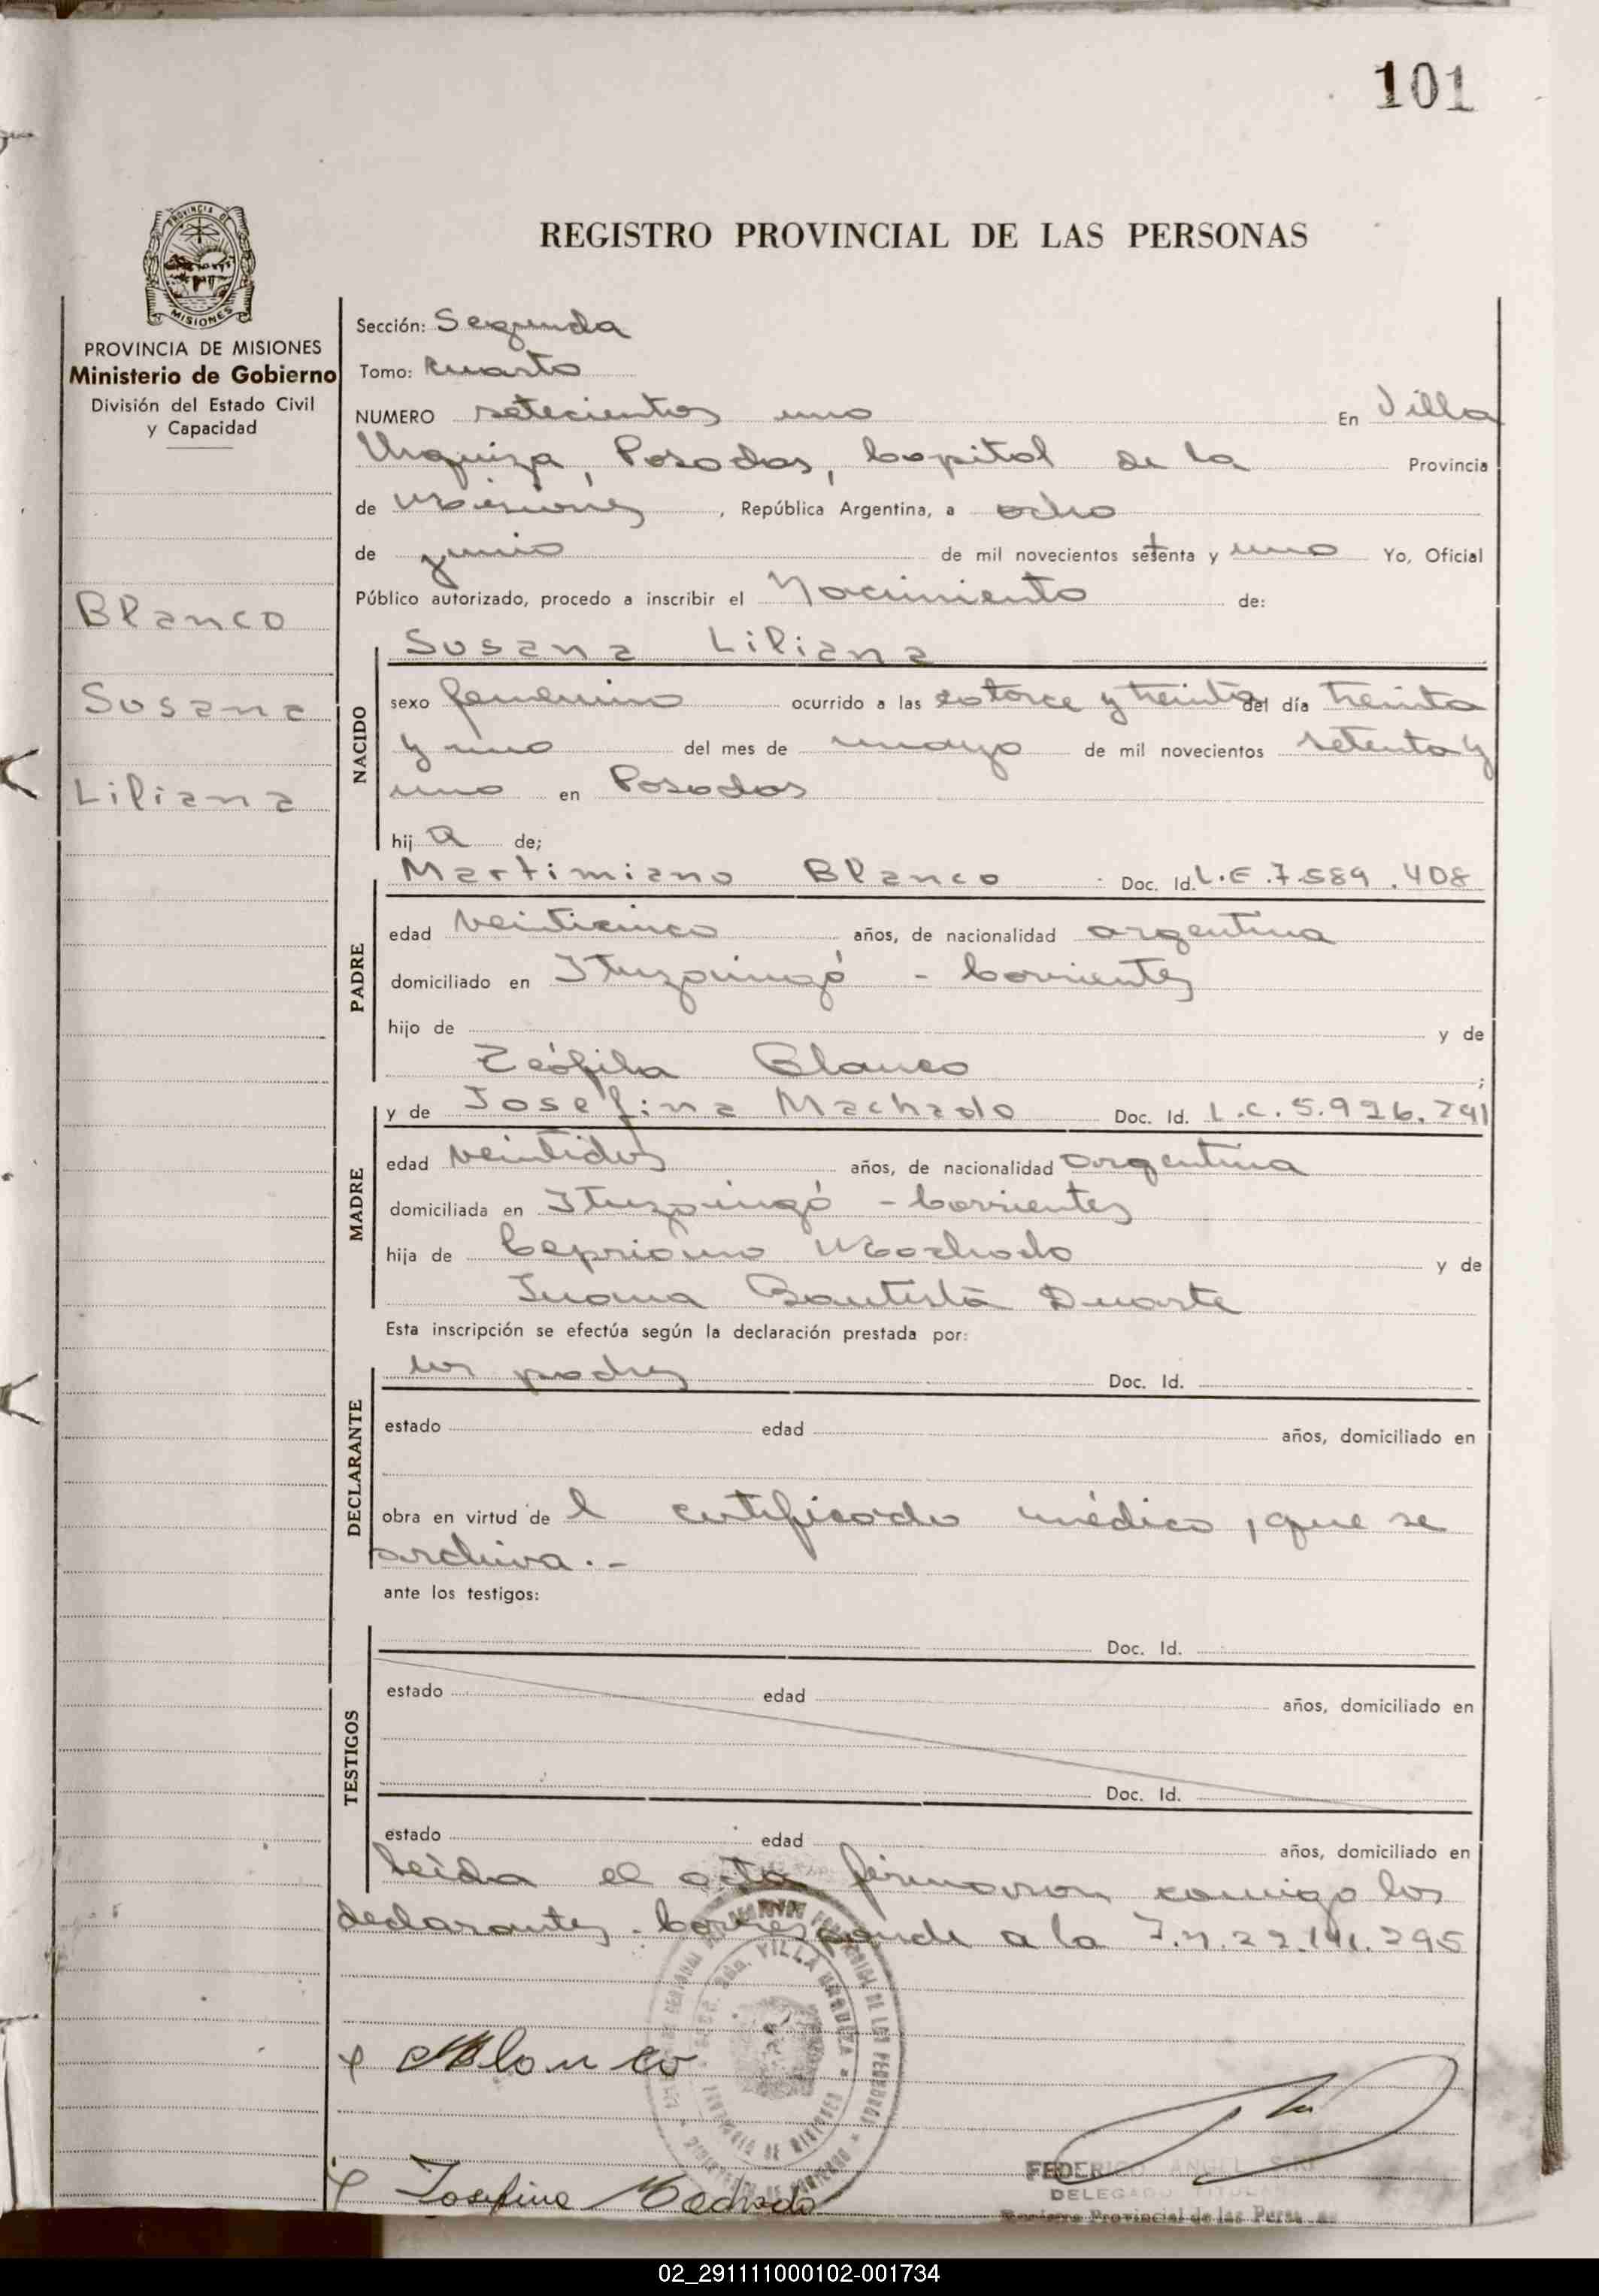 101
PROVINCIA DE
MISIONES
REGISTRO PROVINCIAL DE LAS PERSONAS
PROVINCIA DE MISIONES
Ministerio de Gobierno
División del Estado Civil
y Capacidad
Blanco
Susana
Liliana
Sección: Segunda
Tomo: Cuarto
NUMERO setecientos uno En Villa
Urquiza, Posadas, Capital de la Provincia
de Misiones, República Argentina, a ocho
de junio de mil novecientos setenta y uno Yo, Oficial
Público autorizado, procedo a inscribir el Nacimiento de:
Susana Liliana
NACIDO
sexo femenino ocurrido a las catorce y treinta del día treinta
y uno del mes de mayo de mil novecientos setenta y
uno en Posadas
hija de;
Martimiano Blanco Doc. Id. L.E. 7.589.408
PADRE
edad veinticinco años, de nacionalidad argentina
domiciliado en Ituzaingó - Corrientes
hijo de y de
Teófila Blanco ;
y de Josefina Machado Doc. Id. L.C. 5.926.741
MADRE
edad veintidos años, de nacionalidad argentina
domiciliada en Ituzaingó - Corrientes
hija de Cepriano Machado y de
Juana Bautista Duarte
Esta inscripción se efectúa según la declaración prestada por:
los padres Doc. Id.
DECLARANTE
estado edad años, domiciliado en
obra en virtud del certificado médico, que se
archiva.-
ante los testigos:
Doc. Id.
TESTIGOS
estado edad años, domiciliado en
Doc. Id.
estado edad años, domiciliado en
Leída el acta firmaron conmigo los
declarantes. Corresponde a la 22.141.295
VILLA URQUIZA
Blanco
FEDERICO ANGEL
DELEGADO TITULAR
Josefina Machado
Registro Provincial de las Personas
02_291111000102-001734